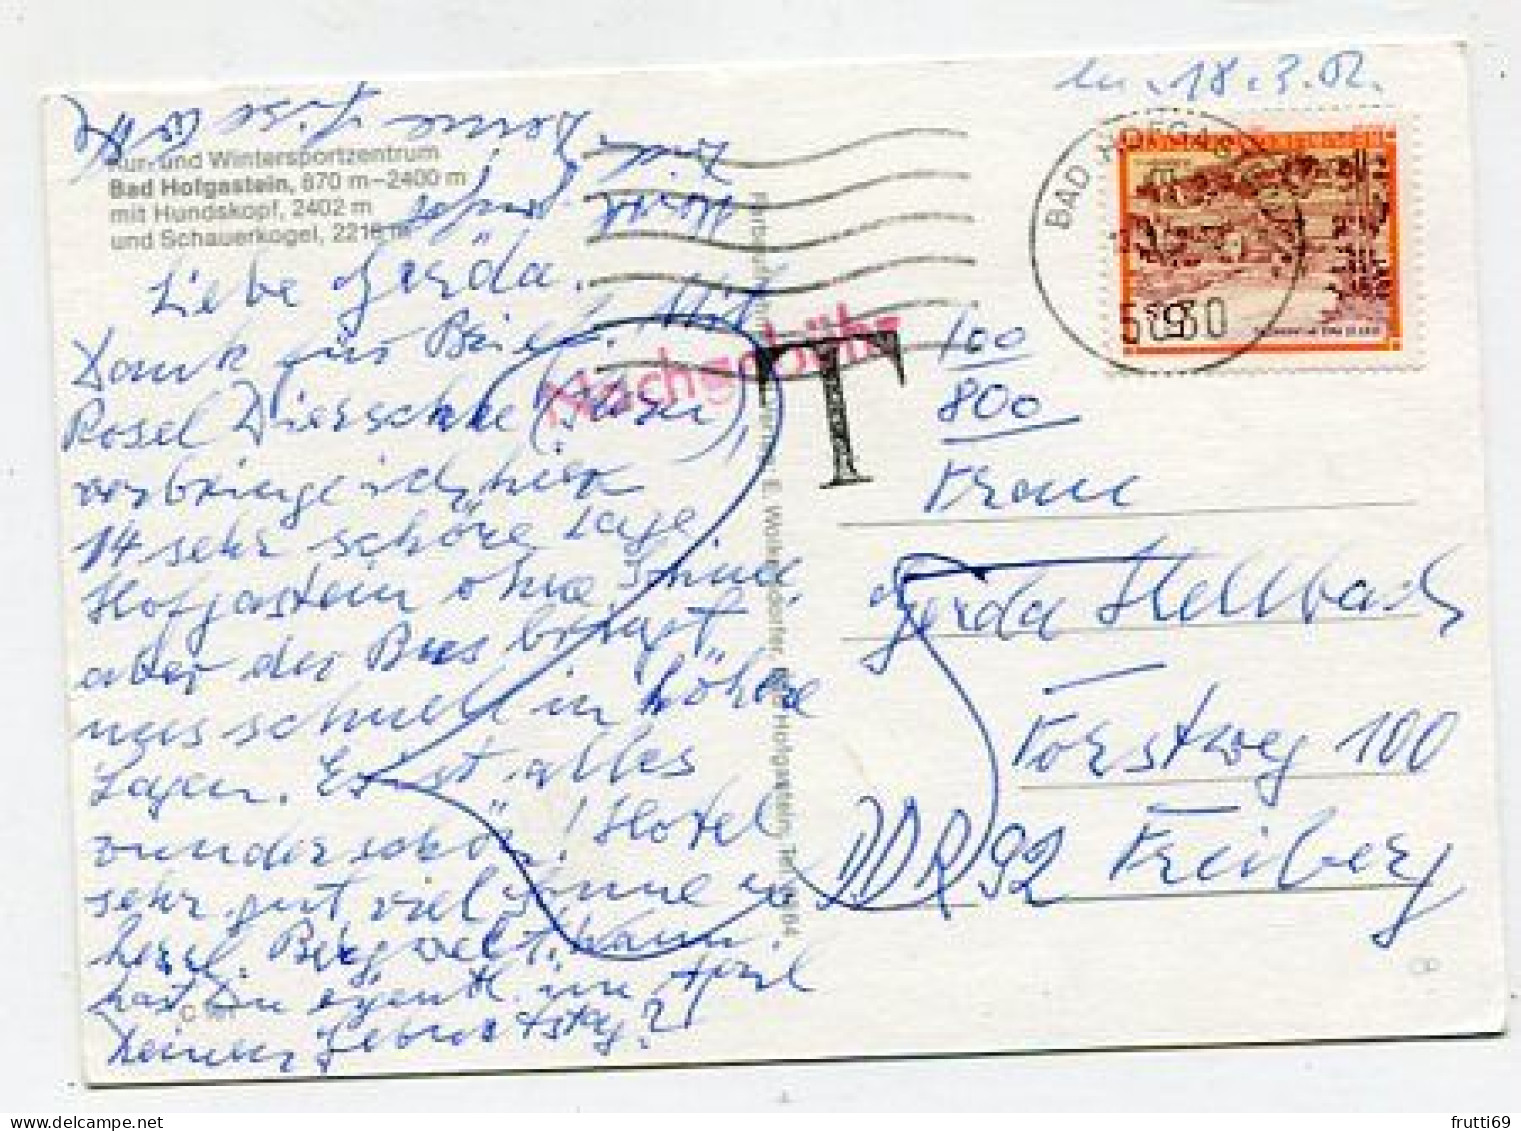 den 18.3.82.
Kur- und Wintersportzentrum
Bad Hofgastein, 870 m–2400 m
mit Hundskopf, 2402 m
und Schauerkogel, 2218 m
Liebe Gerda.
Dank für Brief. Mit
Rosel Dierschke
verbringe ich hier
14 sehr schöne Tage.
Hofgastein ohne
aber der Bus bringt
uns schnell in höhere
Lagen. Es ist alles
wunderschön! Hotel
sehr gut viel Sonne u
herrl. Bergwelt. Wann
hast Du eigentl. im April
Deinen Geburtstag?
Deine Lise
Nachgebühr
T
BAD HOFGASTEIN
5630
S 9
100
800
Frau
Gerda Stellbach
Forstweg 100
DDR 92 Freiberg
frutti69